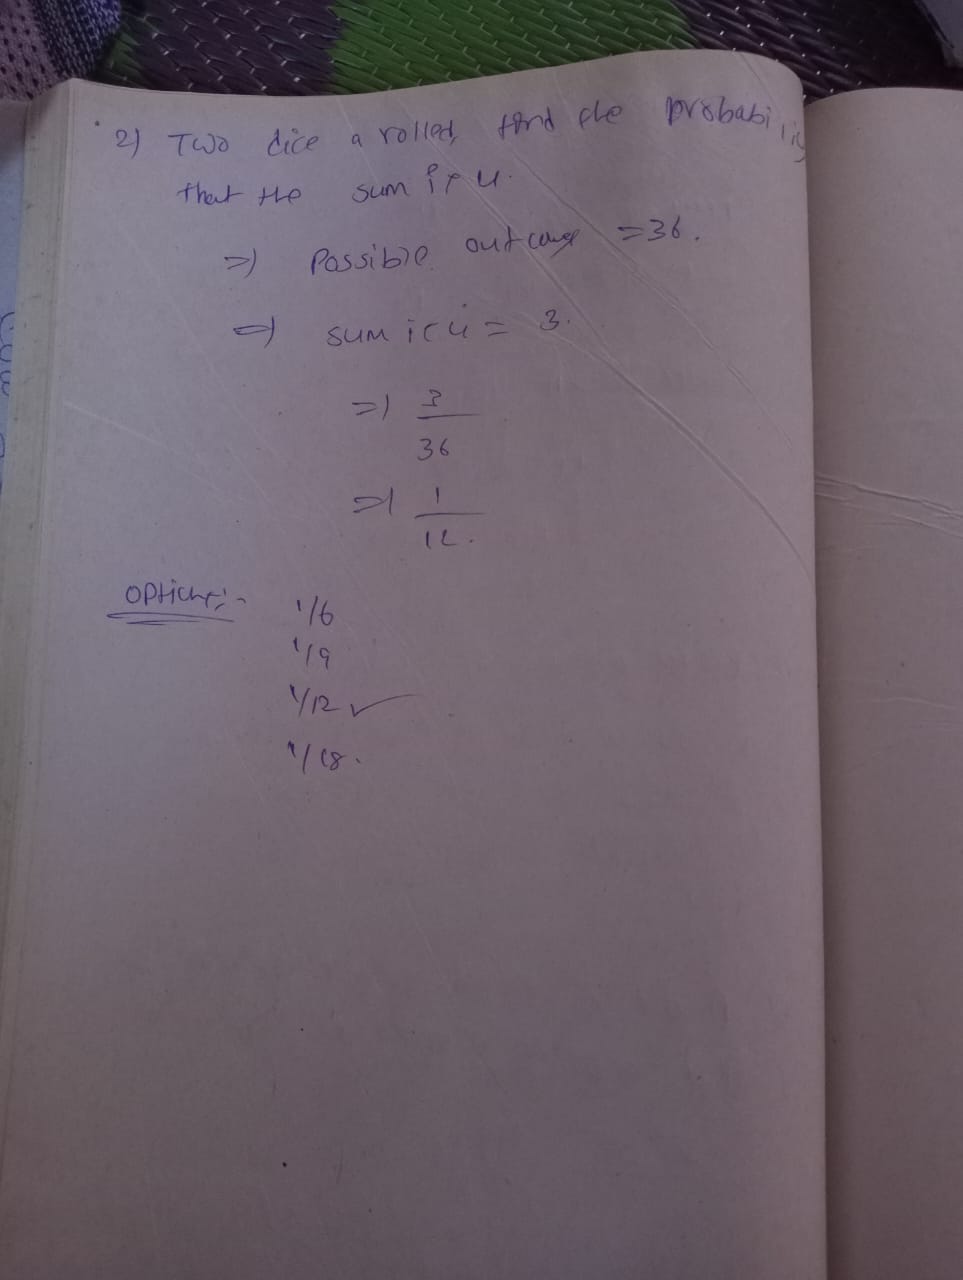 2) Two dice a rolled, find the probability
that the sum is 4.
=) Possible outcome = 36.
=) sum is 4 = 3.
=) 3
36
=) 1
12.
Options:-
1/6
1/9
1/12 ✓
1/18.